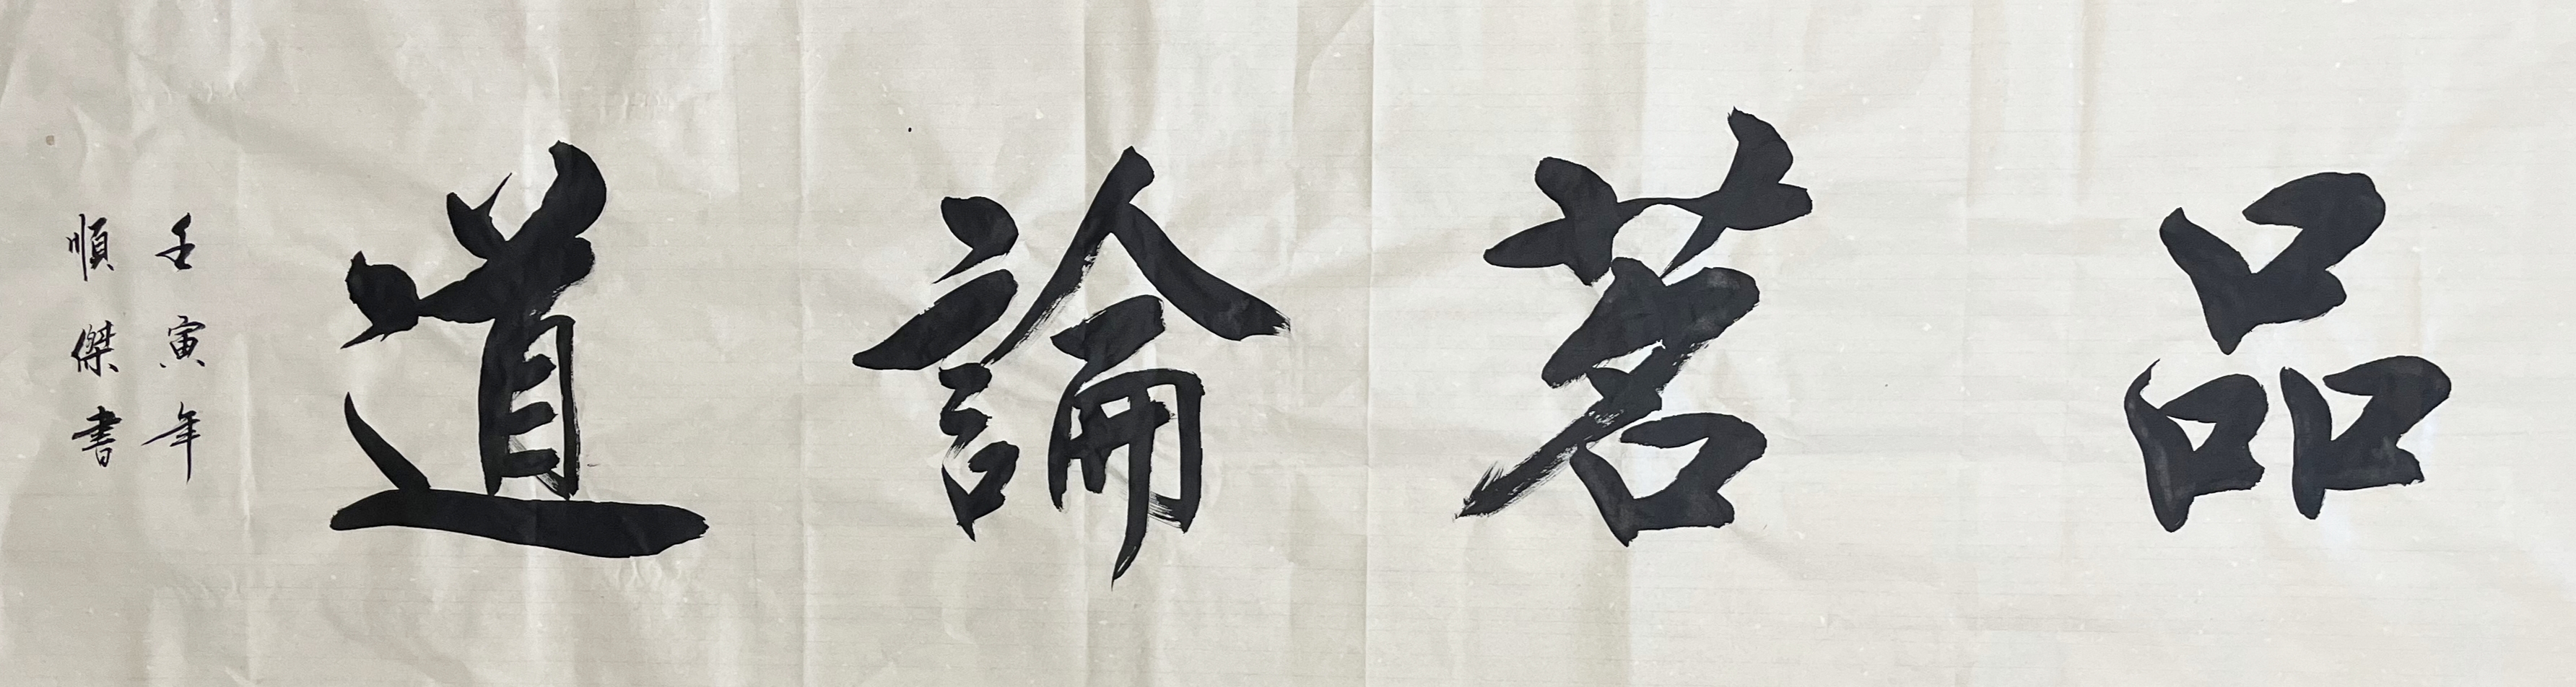 品茗論道
壬寅年
順傑書